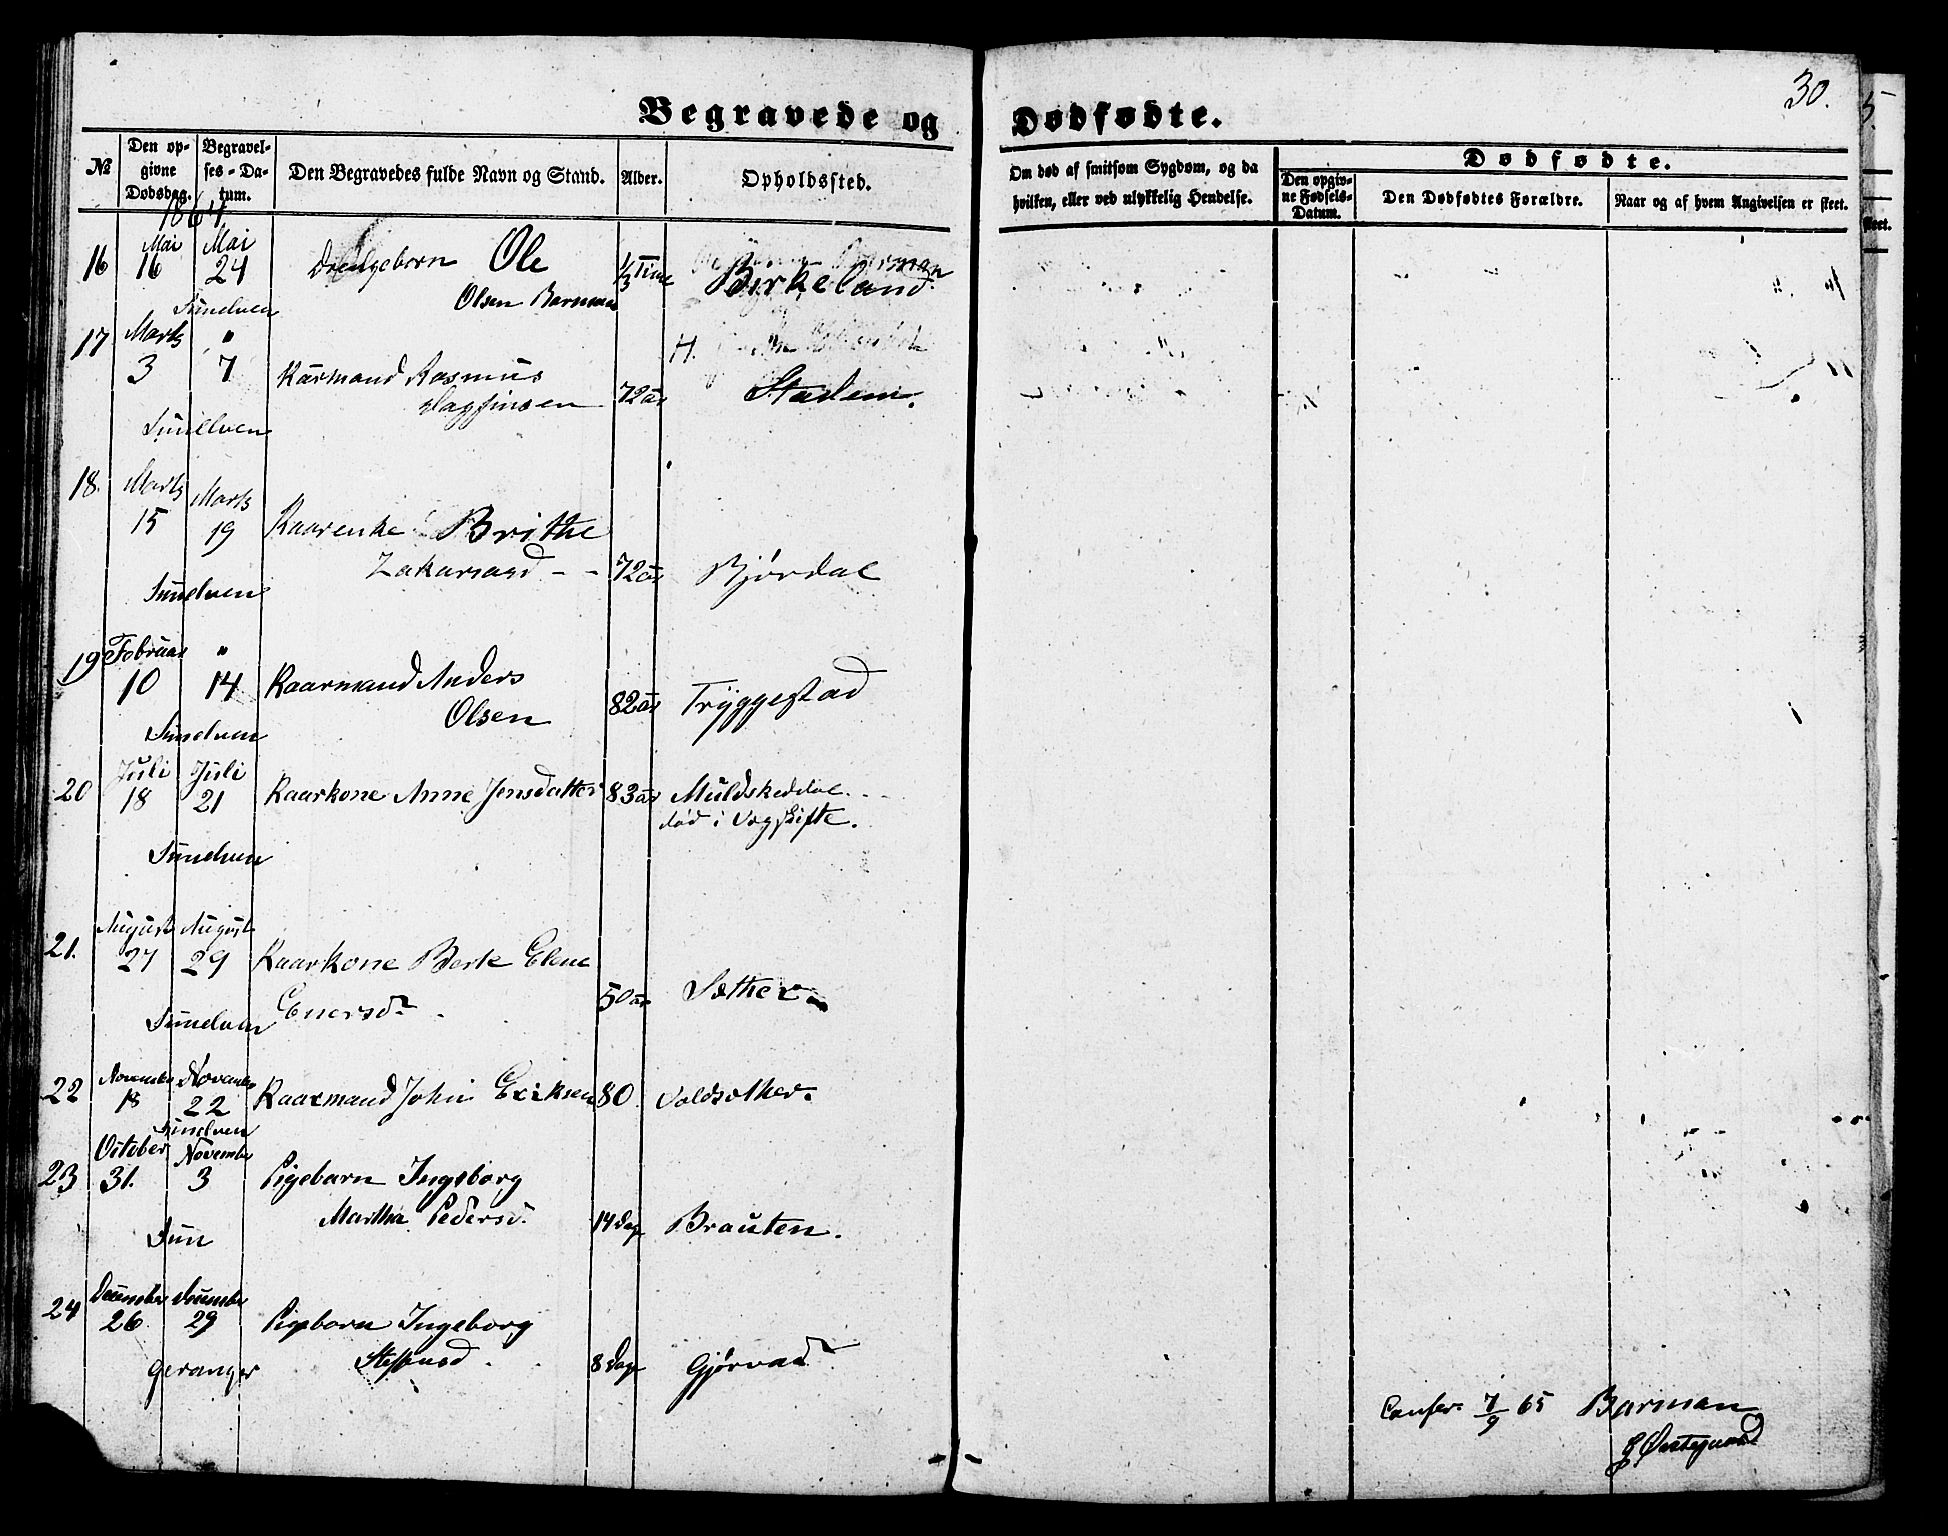 30.
Begravede og Dødfødte.
№
Den opgivne Dødsdag.
Begravelses-Datum.
Den Begravedes fulde Navn og Stand.
Alder.
Opholdssted.
Om død af smitsom Sygdom, og da hvilken, eller ved ulykkelig Hendelse.
Dødfødte.
Den opgivne Fødsels-Datum.
Den Dødfødtes Forældre.
Naar og af hvem Angivelsen er skeet.
1864
16 Mai 16 Mai 24 Drengebarn Ole 1/3 Time Birkeland
Olsen Barman
Sunelven
17 Marts 3 " 7 Karmand Rasmus
Dagfinsen 72 aar Stadem.
Sunelven
18. Marts 15 Marts 19 Kaarenke Brithe
Zakariasd - - 72 aar Bjørdal
Sunelven
19 Februar 10 " 14 Kaarmand Anders
Olsen 82 aar Tryggestad
Sunelven
20 Juli 18 Juli 21 Kaarkone Anne Jensdatter 83 aar Muldskeddal.
død i Sognskifte.
Sunelven
21. August 27 August 29 Kaarkone Berte Elene
Enersd. 50 aar Sæther
Sunelven
22 November 18 November 22 Kaarmand John Eriksen 80
Sunelven
23 October 31. November 3 Pigebarn Ingeborg
Martha Pedersd. 14 Dage Brauten.
Sun
24 December 26 December 29 Pigebarn Ingeborg
Steffensd. 8 Dage Gjørvad
Geranger
Confer. 7/9 65 Barman